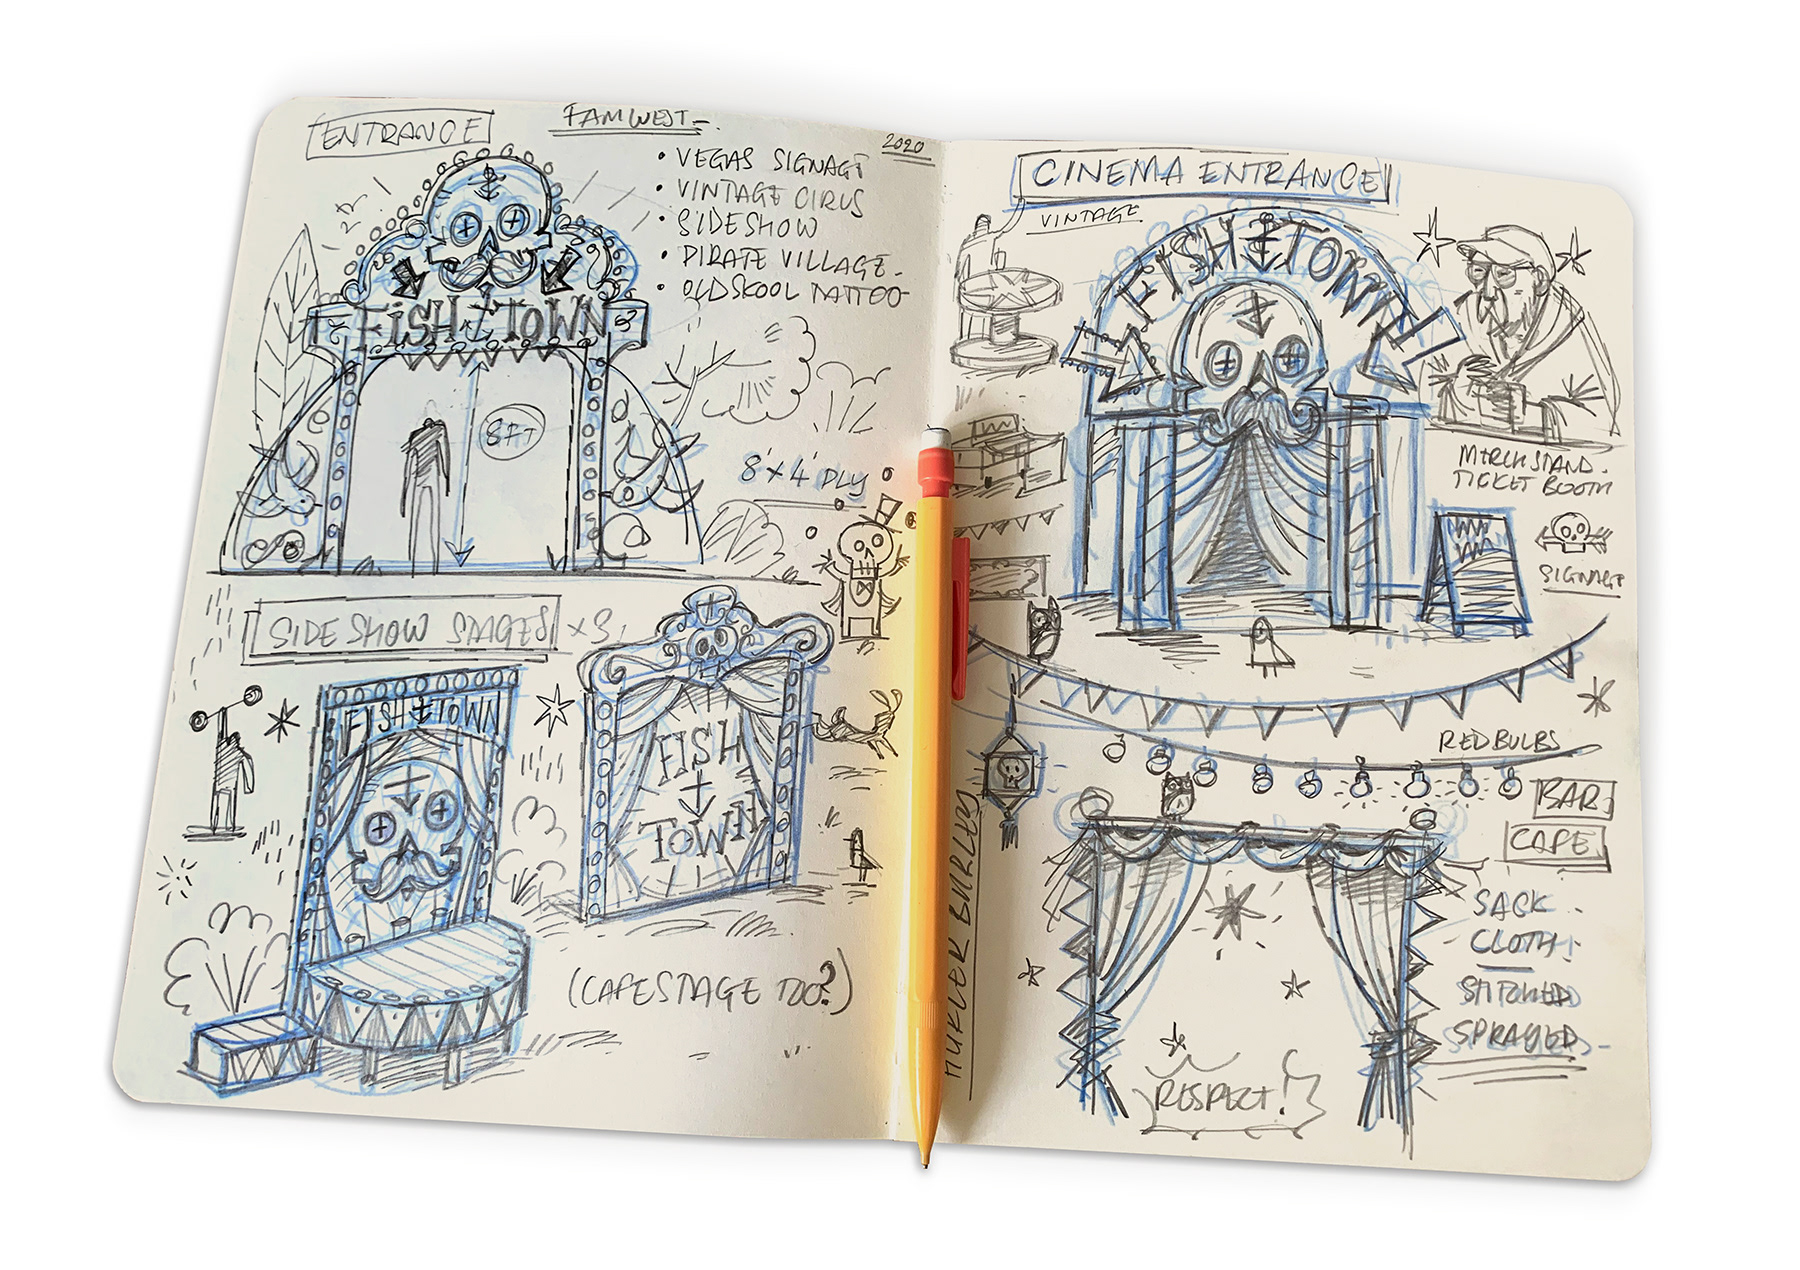 ENTRANCE
FAMWEST-
2020
• VEGAS SIGNAGE
• VINTAGE CIRCS
• SIDESHOW
• PIRATE VILLAGE-
• OLDSKOOL TATTOO
FISH TOWN
8FT
8'x 4' PLY
SIDESHOW STAGES x3
FISH TOWN
FISH
TOWN
(CAFE STAGE TOO?)
CINEMA ENTRANCE
VINTAGE
FISH TOWN
MERCH STAND-
TICKET BOOTH
SIGNAGE
RED BULBS
BAR
CAFE
SACK
CLOTH
STITCHED
SPRAYED
RESPECT!